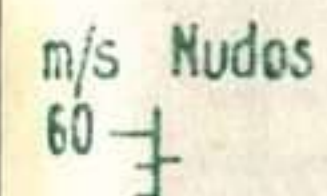 m/s Nudos
60